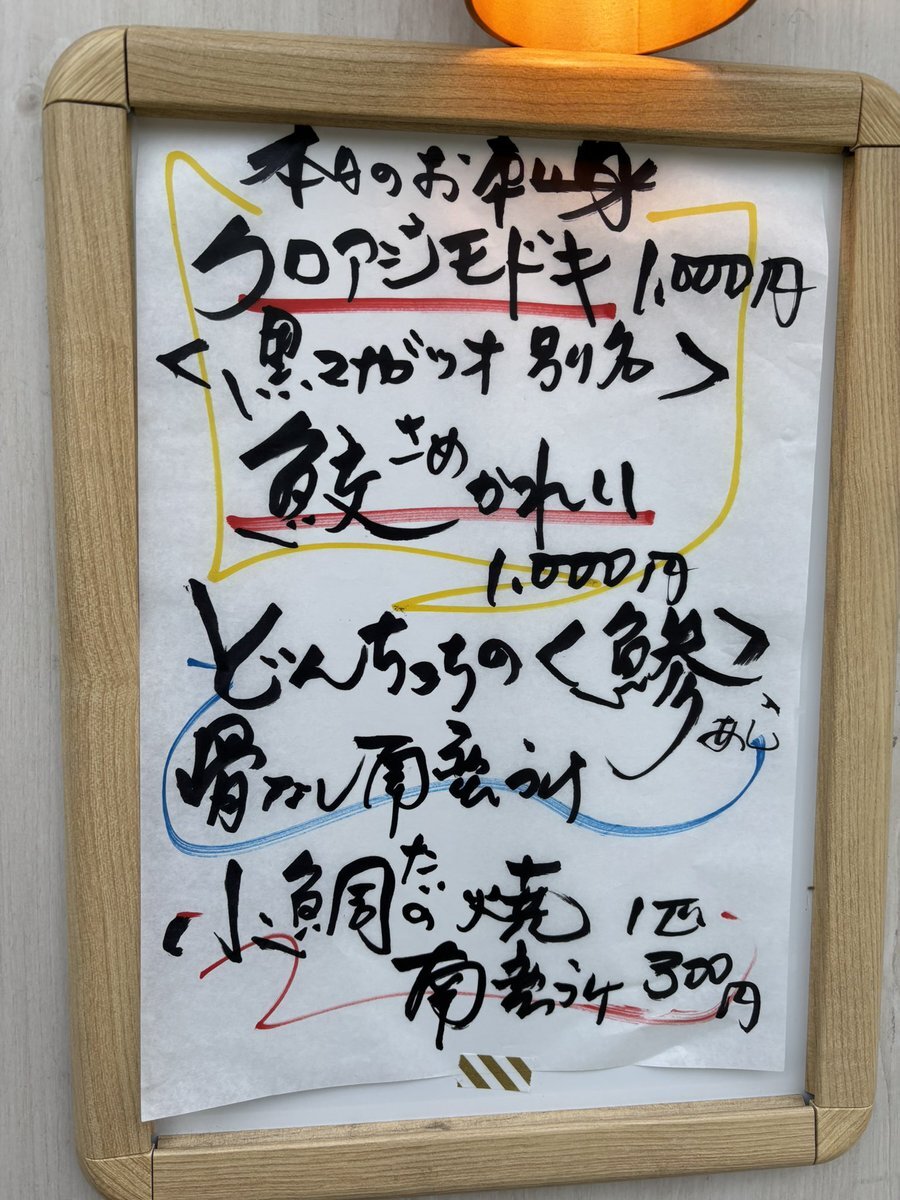 本日のお刺身
クロアジモドキ 1,000円
<黒マナガツオ 別名>
鮫さめがれい
1,000円
どんちっちの<鯵>あじ
骨なし南蛮づけ
小鯛だいの焼 1匹
南蛮づけ 300円